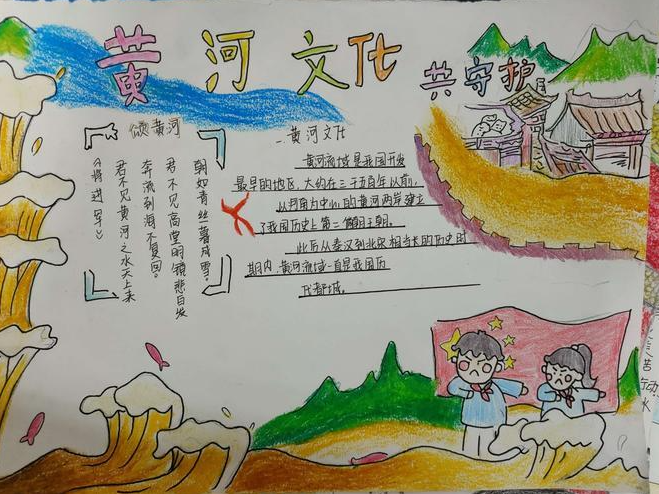 黄河文化
共守护
颂黄河
《将进军》
君不见黄河之水天上来
奔流到海不复回。
君不见高堂明镜悲白发
朝如青丝暮成雪。
一、黄河文化
黄河流域是我国开发
最早的地区，大约在三千五百年以前，
以河南为中心的黄河两岸建立
了我国历史上第一个朝王朝。
此后从秦汉到北宋相当长的历史时
期内，黄河流域一直是我国历
代都城。